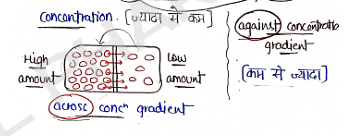 concentration. [ज्यादा से कम]
High amount
Low amount
across concⁿ gradient
against concentratio
gradient
[कम से ज्यादा]